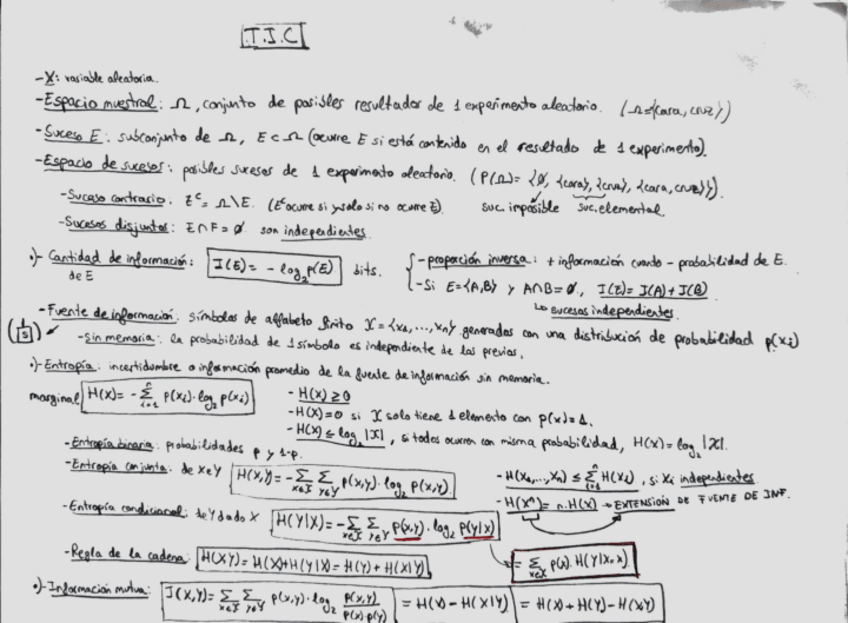 T.I.C
- X: variable aleatoria.
- Espacio muestral: Ω, conjunto de posibles resultados de 1 experimento aleatorio. (Ω={cara, cruz})
- Suceso E: subconjunto de Ω, E ⊂ Ω (ocurre E si está contenido en el resultado de 1 experimento).
- Espacio de sucesos: posibles sucesos de 1 experimento aleatorio. (P(Ω)= {∅, {cara}, {cruz}, {cara, cruz}}).
- Suceso contrario: E^c = Ω\E. (E^c ocurre si y solo si no ocurre E). suc. imposible suc. elemental
- Sucesos disjuntos: E∩F=∅ son independientes.
·)- Cantidad de información: I(E) = - log₂ p(E) bits.
de E
- proporción inversa: + información cuanto - probabilidad de E.
- Si E={A,B} y A∩B=∅, I(E)= I(A)+I(B)
↳ sucesos independientes.
- Fuente de información: símbolos de alfabeto finito X={x₁,...,xₙ} generados con una distribución de probabilidad p(xᵢ)
- Sin memoria: la probabilidad de 1 símbolo es independiente de los previos.
·)- Entropía: incertidumbre o información promedio de la fuente de información sin memoria.
marginal H(X)= - ∑ᵢ₌₁ⁿ p(xᵢ)·log₂ p(xᵢ)
- H(X) ≥ 0
- H(X)=0 si X solo tiene 1 elemento con p(x)=1.
- H(X) ≤ log₂ |X|, si todos ocurren con misma probabilidad, H(X)= log₂ |X|.
- Entropía binaria: probabilidades p y 1-p.
- Entropía conjunta: de X e Y H(X,Y)= - ∑x∈X ∑y∈Y p(x,y)·log₂ p(x,y)
- H(X₁,...,Xₙ) ≤ ∑ᵢ₌₁ⁿ H(Xᵢ), si Xᵢ independientes
- H(Xⁿ)= n·H(X) → EXTENSIÓN DE FUENTE DE INF.
- Entropía condicional: de Y dado X H(Y|X)= - ∑x∈X ∑y∈Y p(x,y)·log₂ p(y|x)
= ∑x∈X p(x)·H(Y|X=x)
- Regla de la cadena: H(XY)= H(X)+H(Y|X)= H(Y)+H(X|Y)
·)- Información mutua: I(X,Y)= ∑x∈X ∑y∈Y p(x,y)·log₂ p(x,y)/p(x)·p(y) = H(X) - H(X|Y) = H(X)+H(Y)-H(X,Y)